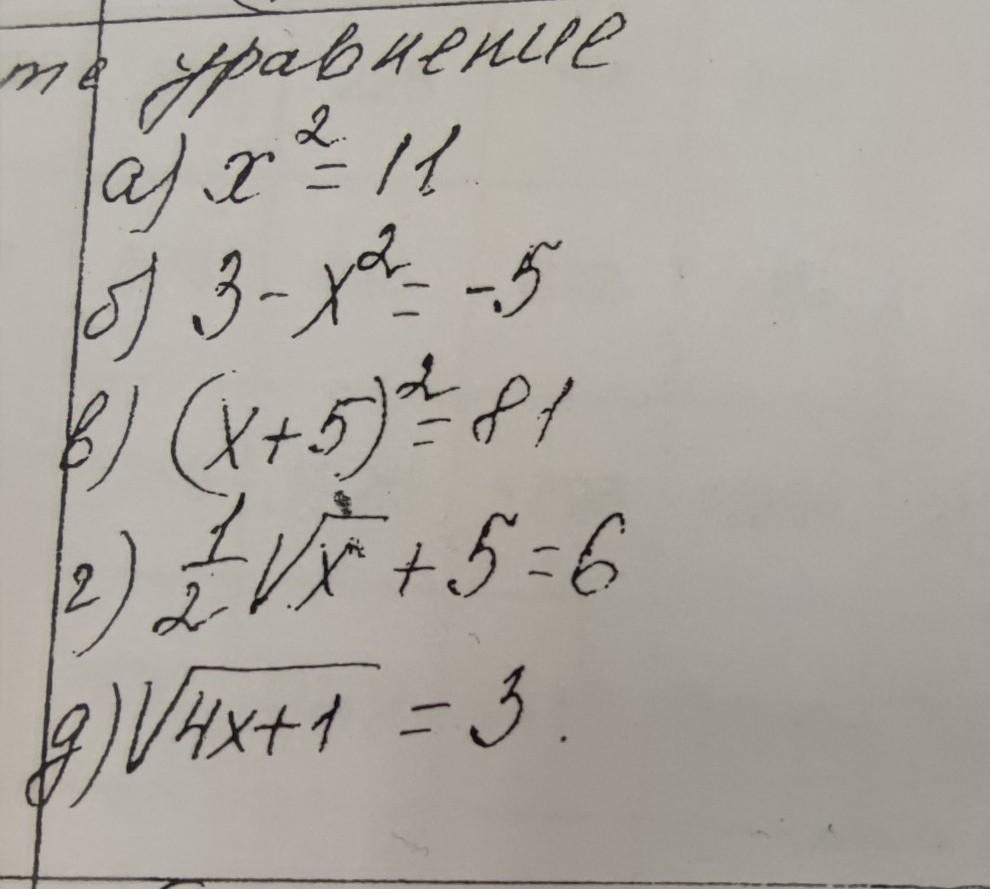 те уравнение
а) x² = 11
б) 3 - x² = -5
в) (x+5)² = 81
г) 1/2 √x + 5 = 6
д) √4x+1 = 3.